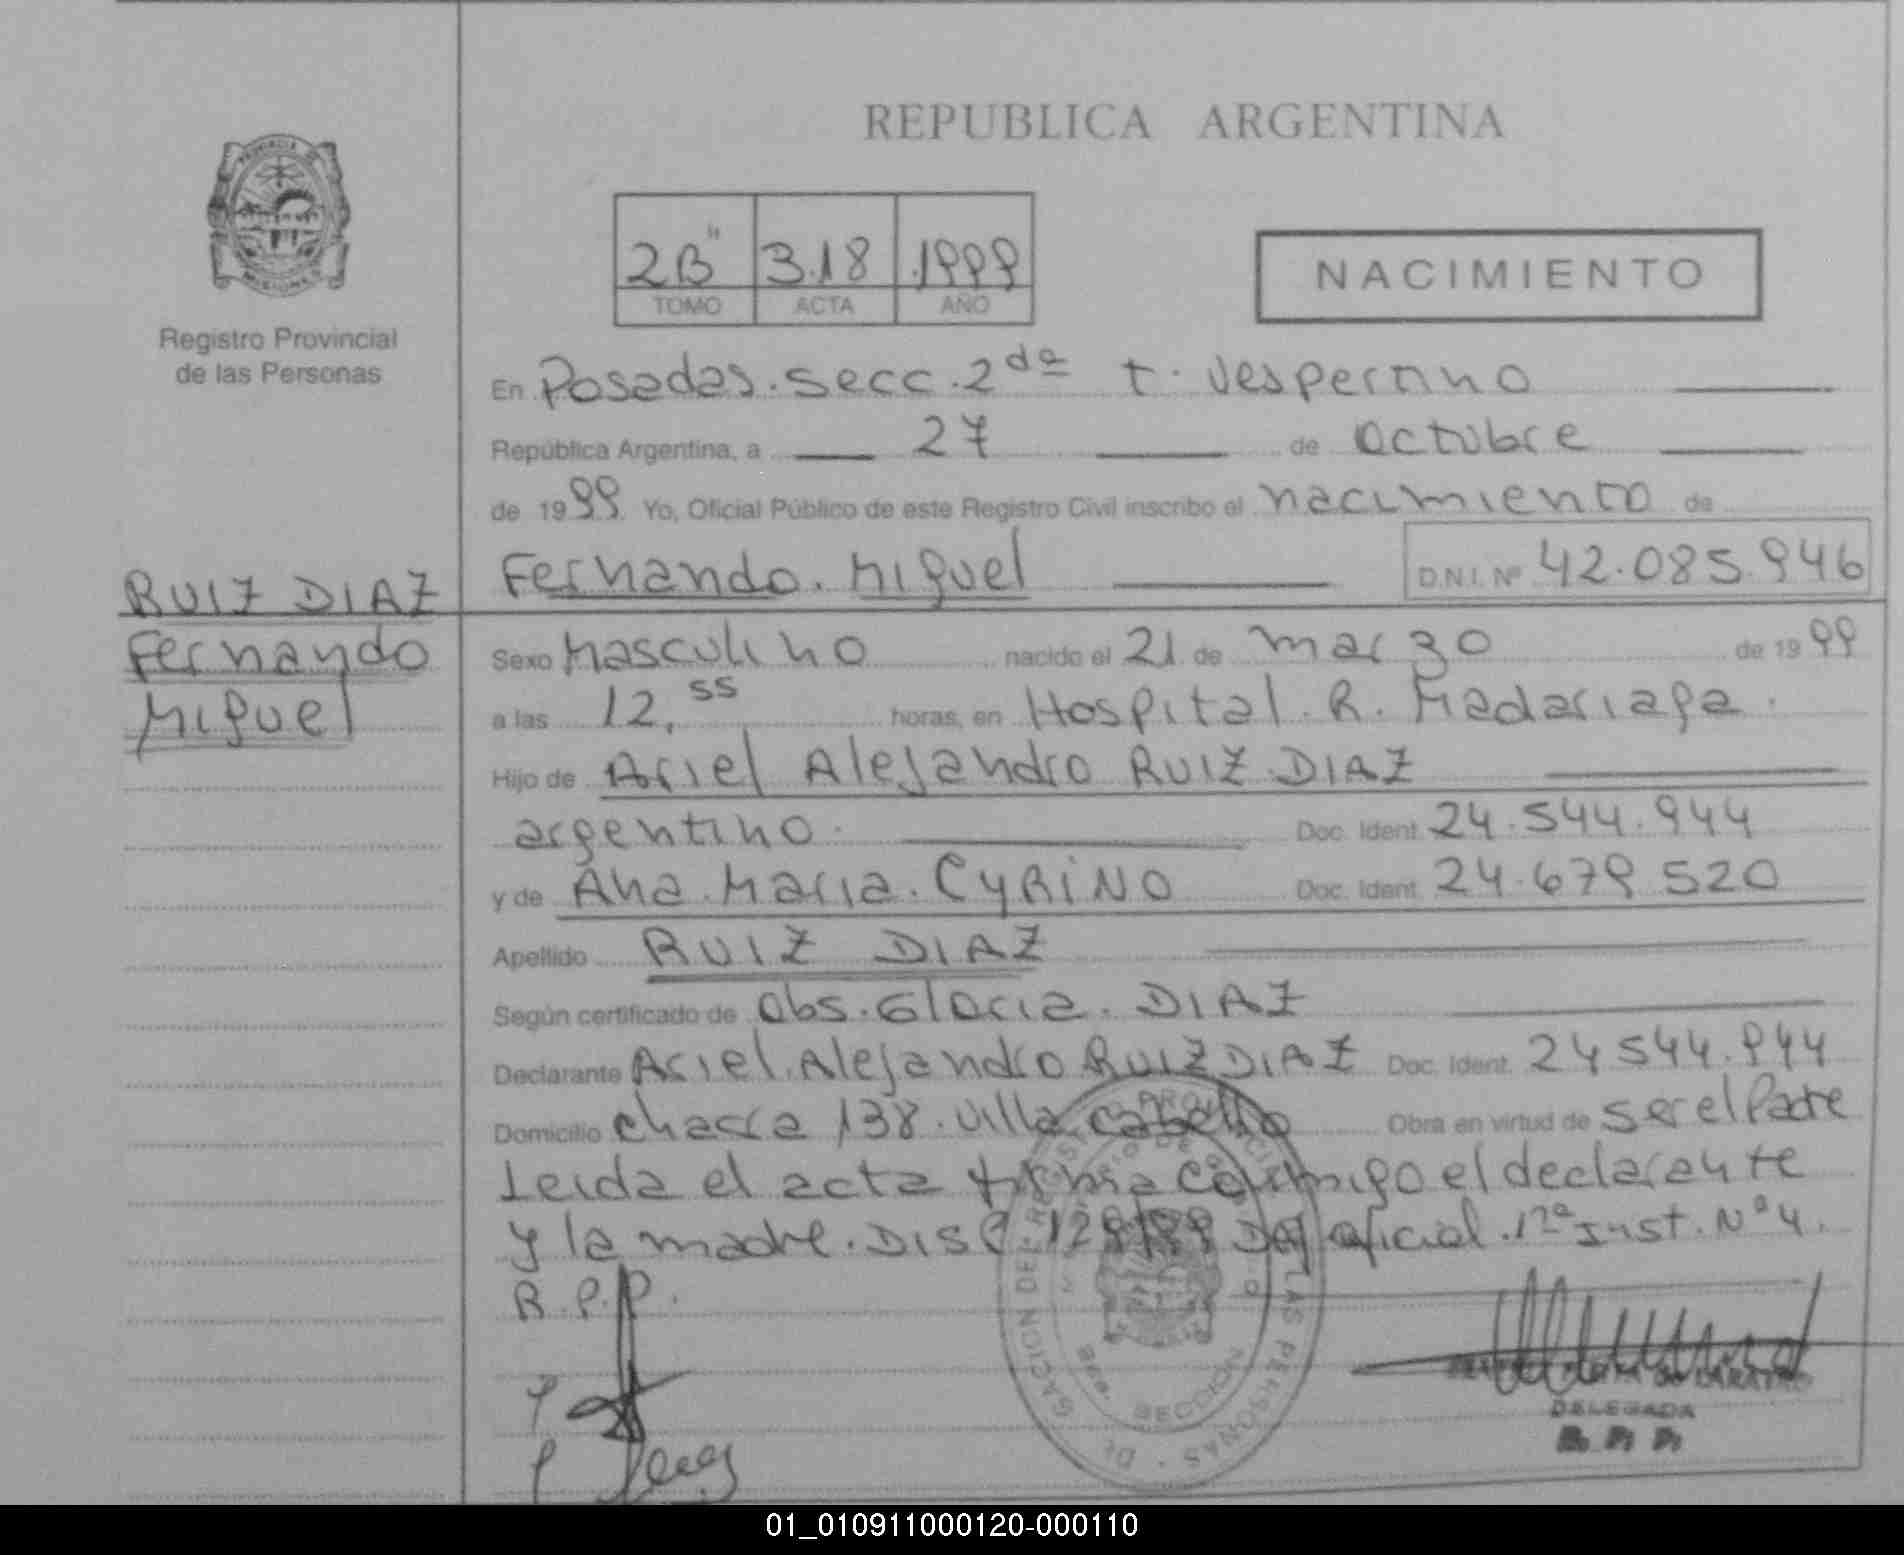 REPUBLICA ARGENTINA
PROVINCIA DE
MISIONES
Registro Provincial
de las Personas
2B" 318 1999
TOMO ACTA AÑO
NACIMIENTO
En Posadas. Secc. 2da t. Vespertino
República Argentina, a 27 de Octubre
de 1999 Yo, Oficial Público de este Registro Civil inscribo el nacimiento de
Fernando. Miguel D.N.I. Nº 42.085.946
RUIZ DIAZ
Fernando
Miguel
Sexo Masculino nacido el 21 de marzo de 1999
a las 12,55 horas, en Hospital. R. Madariaga.
Hijo de Ariel Alejandro RUIZ DIAZ
argentino. Doc. Ident. 24.544.944
y de Ana. Maria. CYRINO Doc. Ident. 24.679.520
Apellido RUIZ DIAZ
Según certificado de Obs. Gloria. DIAZ
Declarante Ariel. Alejandro RUIZ DIAZ Doc. Ident. 24544.944
Domicilio Chacra 138. Villa Cabello Obra en virtud de ser el Padre
Leida el acta firma conmigo el declarante
y la madre. Disp 129/99 oficial. Inst. Nº 4.
R.P.P.
DELEGADA
SECCION
01_010911000120-000110